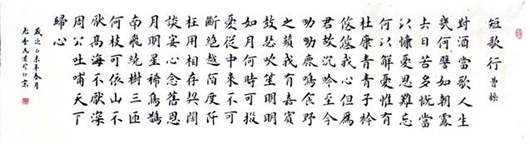 短歌行 曹操
對酒當歌人生
幾何譬如朝露
去日苦多慨當
以慷憂思難忘
何以解憂惟有
杜康青青子衿
悠悠我心但爲
君故沉吟至今
呦呦鹿鳴食野
之蘋我有嘉賓
鼓瑟吹笙明明
如月何時可掇
憂從中來不可
斷絕越陌度阡
枉用相存契闊
談宴心念舊恩
月明星稀烏鵲
南飛繞樹三匝
何枝可依山不
厭高海不厭深
周公吐哺天下
歸心
歲次乙未年春月